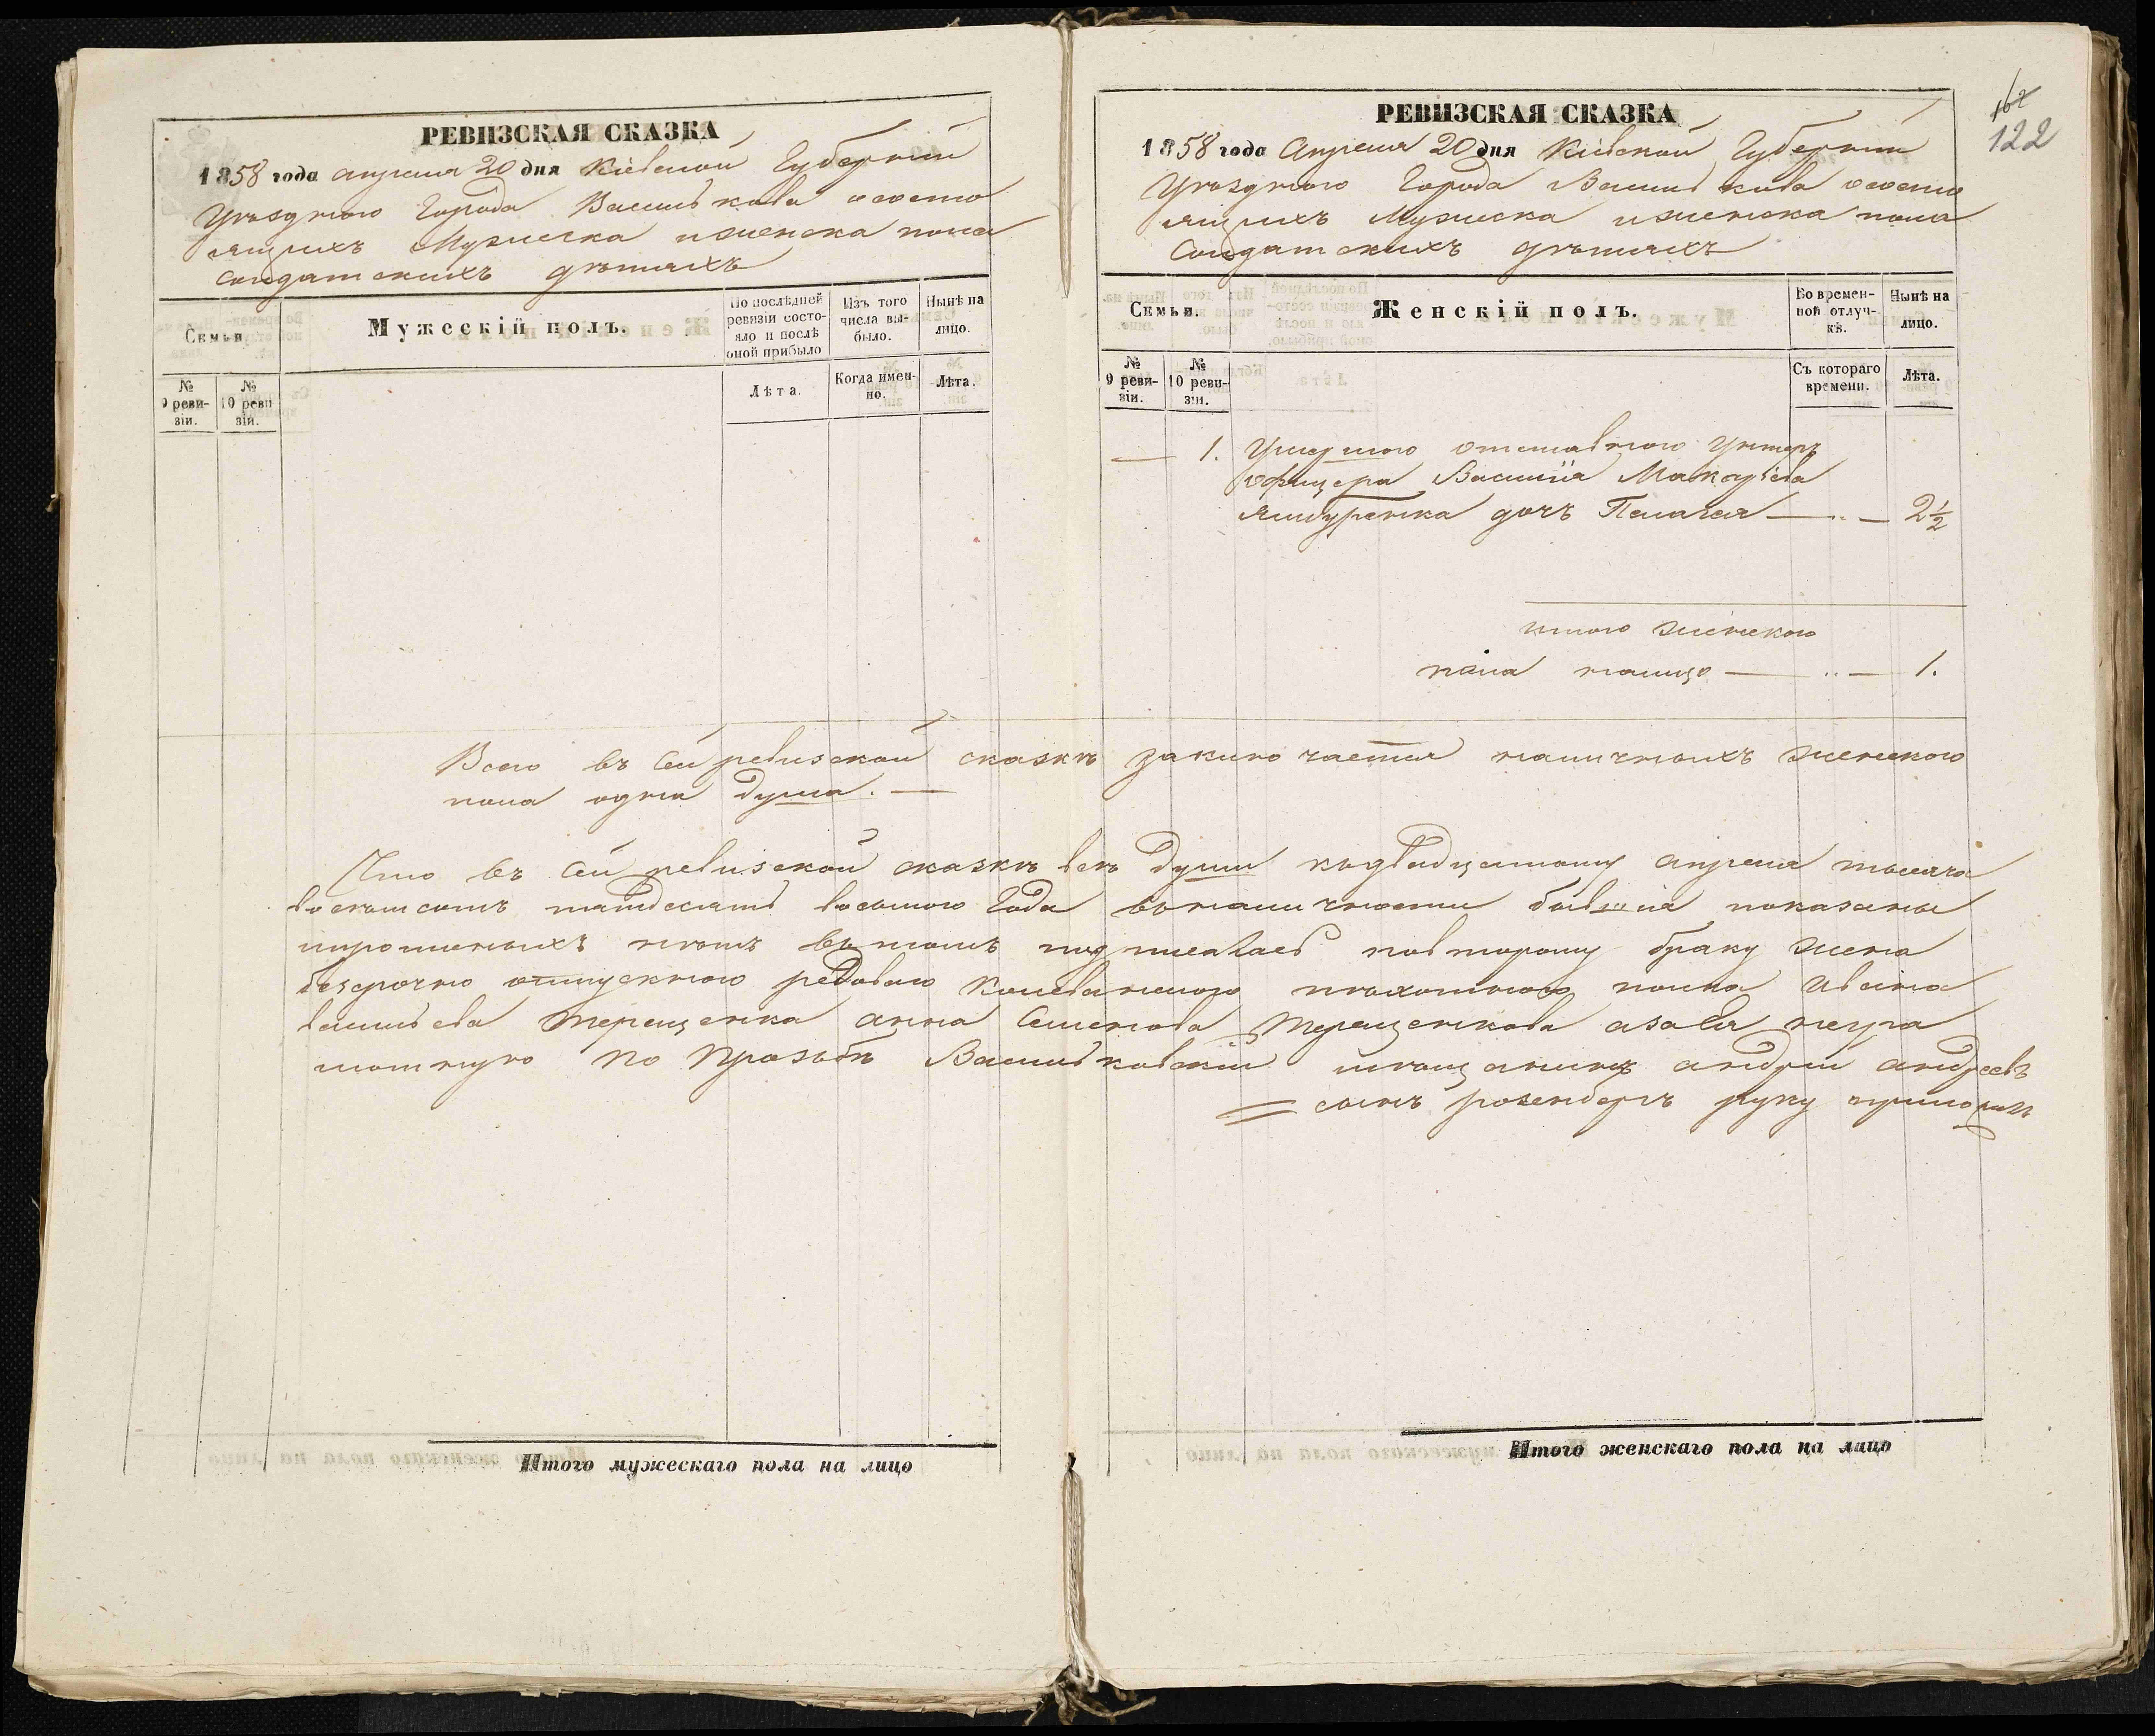 РЕВИЗСКАЯ СКАЗКА
1858 года апреля 20 дня Кіевской Губерніи
Уѣзднаго Города Василькова о состо
ящихъ Мужеска и женска пола
солдатскихъ дѣтяхъ
Семьи.
Мужескій полъ.
По послѣдней ревизіи состояло и послѣ оной прибыло
Изъ того числа выбыло.
Нынѣ на лицо.
№ 9 ревизіи.
№ 10 ревизіи.
Лѣта.
Когда именно.
Лѣта.
Итого мужескаго пола на лицо
162
122
РЕВИЗСКАЯ СКАЗКА
1858 года Апреля 20 дня Кіевской Губерніи
Уѣзднаго Города Василькова о состо
ящихъ Мужеска и женска пола
Солдатскихъ дѣтяхъ
Семьи.
Женскій полъ.
Во временной отлучкѣ.
Нынѣ на лицо.
№ 9 ревизіи.
№ 10 ревизіи.
Съ котораго времени.
Лѣта.
— 1. Умершого отставного Унтеръ
офицера Василія
дочъ Пелагея — .. — 2½
итого женского
пола налицо — .. — 1.
Всего въ сей ревизской сказкѣ заключается наличныхъ женского
пола одна душа. —
Что въ сей ревизской сказкѣ всѣ души къ двадцатому апреля тысяча
восемьсотъ пятдесятъ восьмого Года вналичности бывшіе показаны
и прописныхъ нѣтъ въ томъ подписалась повторому браку жена
безсрочно отпускного редового пѣхотного полка Ивана
васильева терещенка анна Семенова Терещенкова а за ея негра
мотную по прозьбѣ Васильковскій мѣщанинъ андрей андреевъ
= сынъ розенбергъ руку приложилъ
Итого женскаго пола на лицо